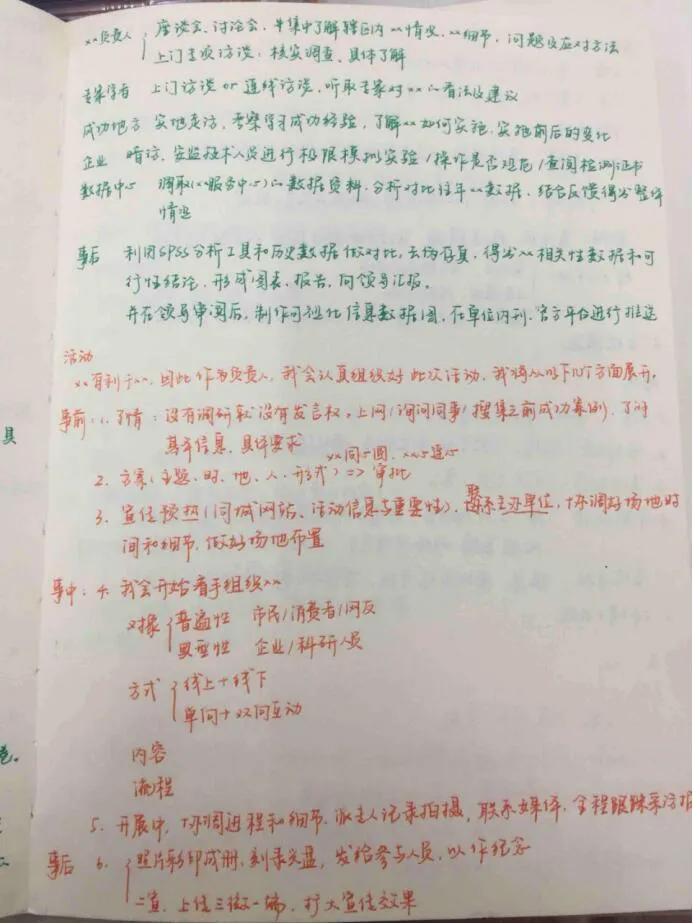 xx负责人 座谈会、讨论会，集中了解辖区内xx情况、xx细节，问题及应对方法
上门专项访谈，核实调查、具体了解
专家学者 上门访谈 or 连线访谈，听取专家对xx的看法及建议
成功地方 实地走访，考察学习成功经验，了解xx如何实施，实施前后的变化
企业 暗访，安监技术人员进行极限模拟实验/操作是否规范/查阅检测证书
数据中心 调取(xx服务中心)的数据资料，分析对比往年xx数据，结合反馈得出整体
情况
事后 利用SPSS分析工具和历史数据做对比，去伪存真，得出xx相关性数据和可
行性结论，形成图表、报告，向领导汇报。
并在领导审阅后，制作可视化信息数据图，在单位内刊、官方平台进行推送
活动
xx有利于xx，因此作为负责人，我会认真组织好此次活动，我将从以下几个方面展开。
事前：1. 了情：没有调研就没有发言权。上网/询问同事/搜集之前成功案例，了解
其详信息，具体要求
xx同心圆，xx心连心
2. 方案(主题、时、地、人、形式) => 审批
3. 宣传预热(同城网站、活动信息与重要性)，联系主办单位，协调好场地时
间和细节，做好场地布置
事中：4. 我会开始着手组织xx
对象 普遍性 市民/消费者/网友
典型性 企业/科研人员
方式 线上+线下
单向+双向互动
内容
流程
5. 开展中，协调进程和细节，派专人记录拍摄，联系媒体，全程跟踪采访报
事后 6. 照片彩印成册，刻录光盘，发给参与人员，以作纪念
二宣，上传三微一端，扩大宣传效果
具